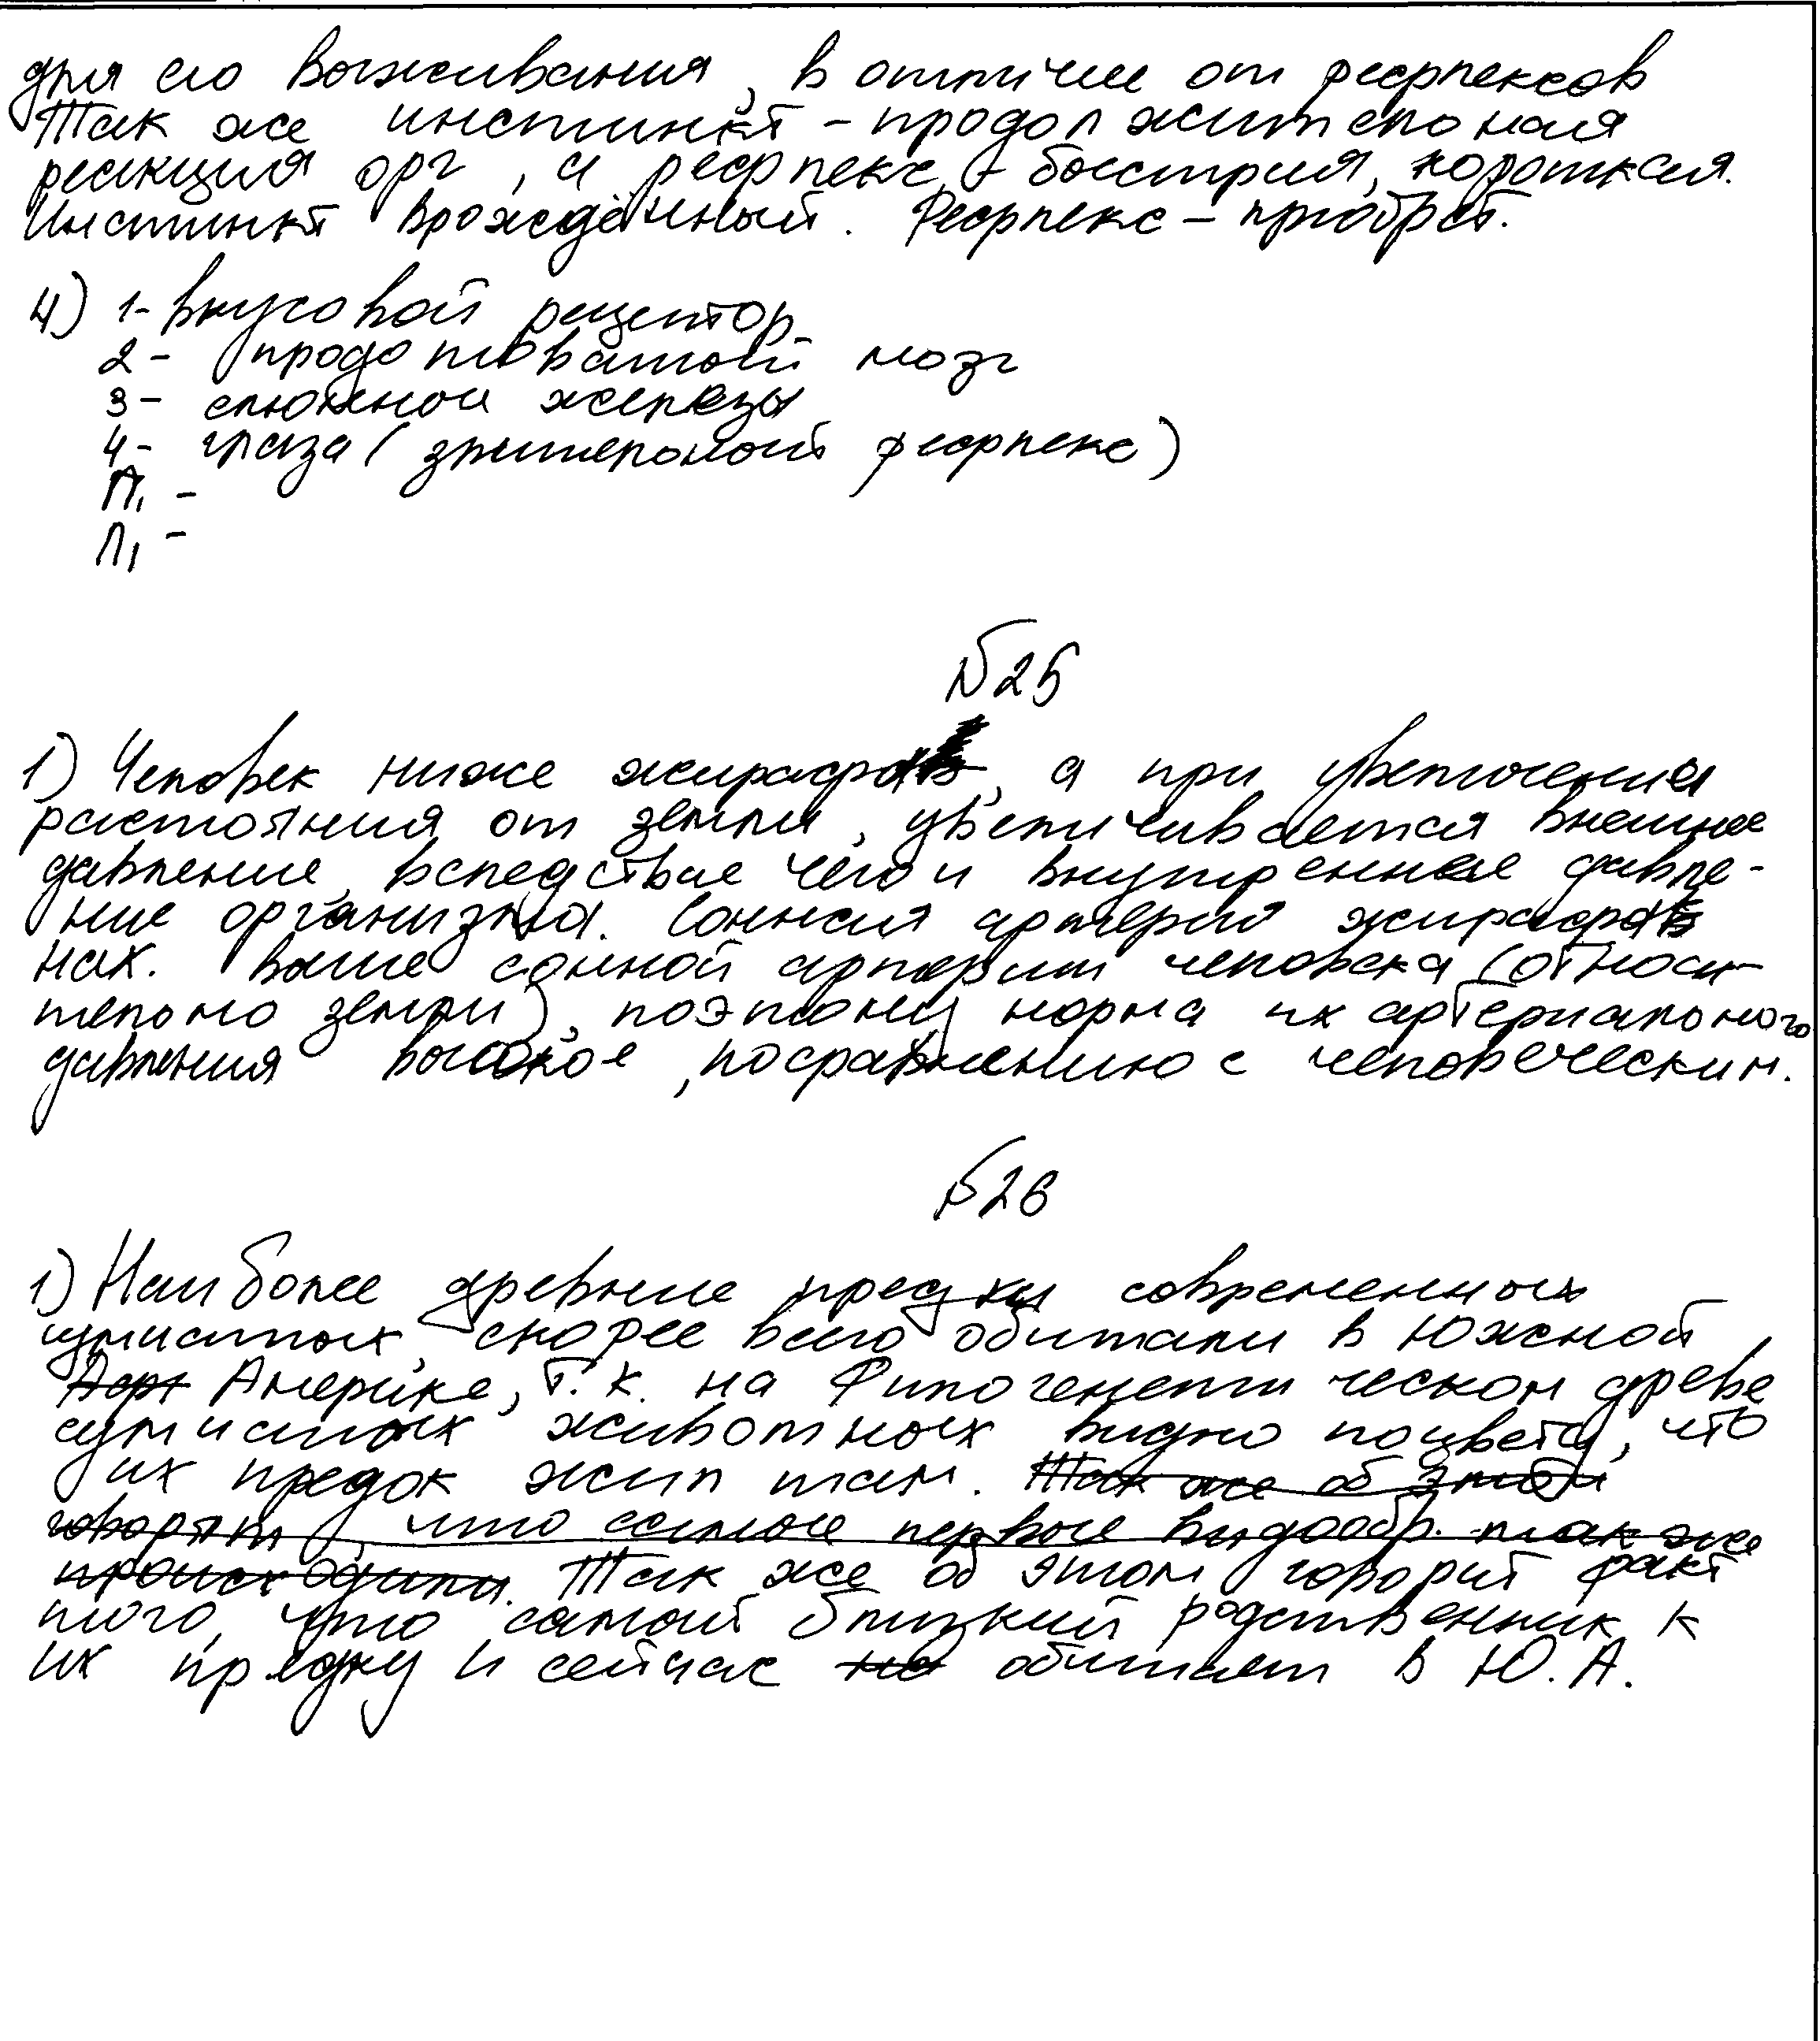 для его выживания, в отличие от рефлексов
Так же инстинкт - продолжительная
реакция орг, а рефлекс - быстрая, короткая.
Инстинкт врождённый. Рефлекс - приобрет.
4) 1- вкусовой рецептор
2- продолговатый мозг
3- слюнной железы
4- глаза (зрительный рефлекс)
П₁ -
Л₁ -
№25
1) Человек ниже жирафа, а при увеличении
растояния от земли, увеличивается внешнее
давление, вследствие чего и внутреннее давле-
ние организма. Сонная артерия жирафа
нах. выше сонной артерии человека (относи-
тельно земли), поэтому норма их артериального
давления высокое, посравнению с человеческим.
№26
1) Наиболее древние предки современных
сумчатых, скорее всего обитали в Южной
Афр Америке, т.к. на Филогенетическом древе
сумчатых животных видно поцвету, что
их предок жил там. Так же об этом
говорят, что самые первые видообр. так же
происходили. Так же об этом говорит факт
того, что самый близкий родственник к
их предку и сейчас не обитает в Ю.А.